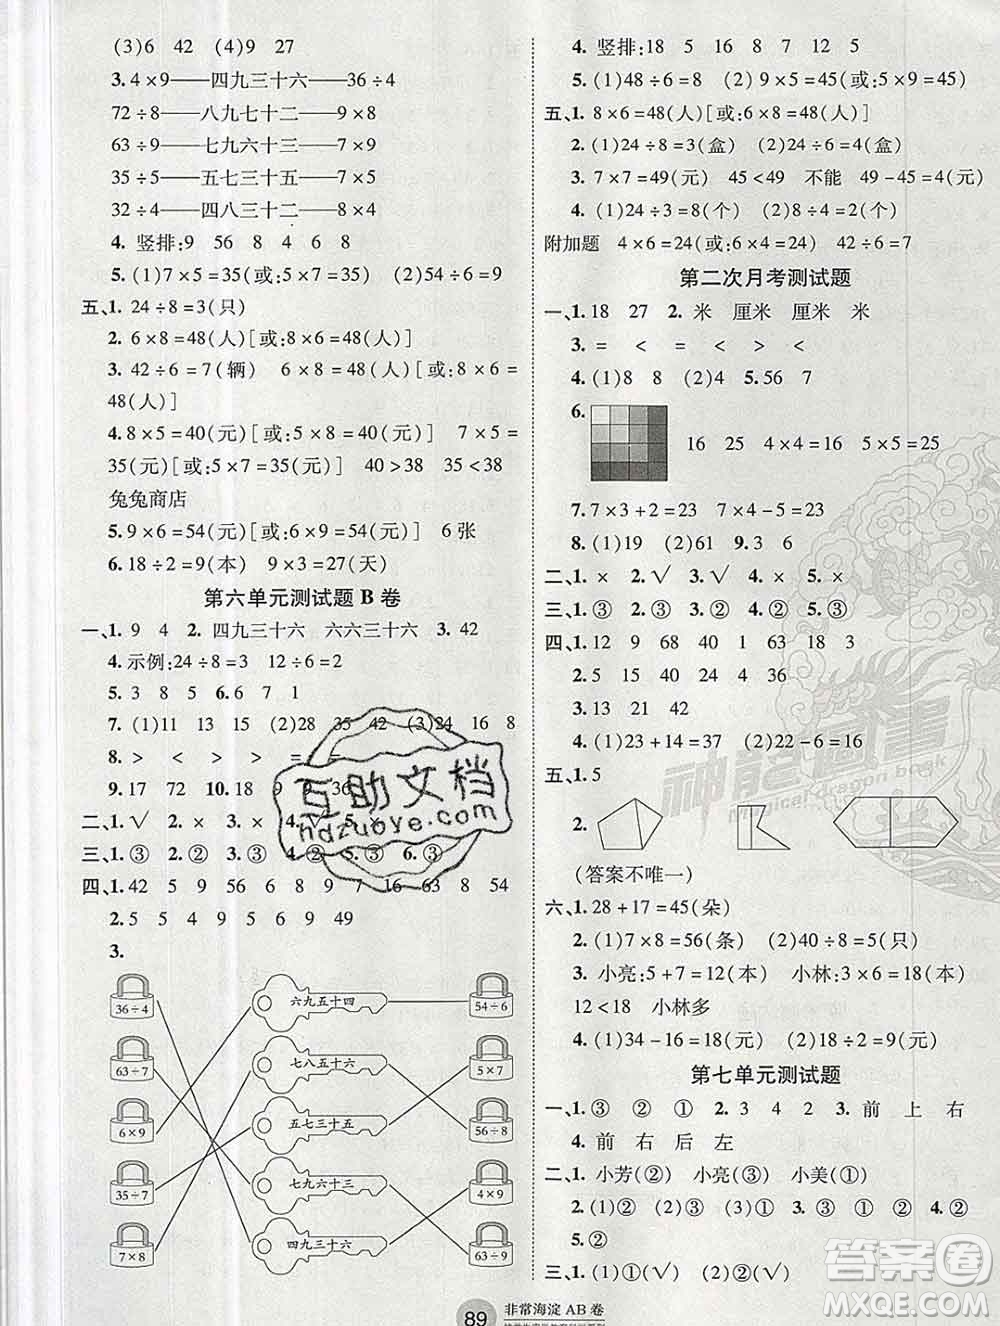 (3)6 42 (4)9 27
3.4×9——四九三十六——36÷4
72÷8——八九七十二——9×8
63÷9——七九六十三——7×9
35÷5——五七三十五——7×5
32÷4——四八三十二——8×4
4.竖排:9 56 8 4 6 8
5.(1)7×5=35(或:5×7=35) (2)54÷6=9
五、1.24÷8=3(只)
2.6×8=48(人)[或:8×6=48(人)]
3.42÷6=7(辆) 6×8=48(人)[或:8×6=
48(人)]
4.8×5=40(元)[或:5×8=40(元)] 7×5=
35(元)[或:5×7=35(元)] 40>38 35<38
兔兔商店
5.9×6=54(元)[或:6×9=54(元)] 6张
6.18÷2=9(本) 9×3=27(天)
第六单元测试题B卷
一、1.9 4 2.四九三十六 六六三十六 3.42
4.示例:24÷8=3 12÷6=2
5.3 8 5 6.6 7 1
7.(1)11 13 15 (2)28 35 42 (3)24 16 8
8.> < > < = =
9.17 72 10.18 9 36
二、1.√ 2.× 3.× 4.√ 5.×
三、1.③ 2.② 3.③ 4.② 5.③ 6.③
四、1.42 5 9 56 9 7 16 63 8 54
2.5 54 9 5 6 9 49
3.
36÷4 六九五十四 54÷6
63÷7 七八五十六 5×7
6×9 五七三十五 56÷8
35÷7 七九六十三 4×9
7×8 四九三十六 63÷9
互助文档
hdzuoye.com
89 非常海淀AB卷
4.竖排:18 5 16 8 7 12 5
5.(1)48÷6=8 (2)9×5=45(或:5×9=45)
五、1.8×6=48(人)[或:6×8=48(人)]
2.(1)24÷8=3(盒) (2)24÷6=4(盒)
3.7×7=49(元) 45<49 不能 49-45=4(元)
4.(1)24÷3=8(个) (2)8÷4=2(个)
附加题 4×6=24(或:6×4=24) 42÷6=7
第二次月考测试题
一、1.18 27 2.米 厘米 厘米 米
3.= < < = > <
4.(1)8 8 (2)4 5.56 7
6. 16 25 4×4=16 5×5=25
7.7×3+2=23 7×4-5=23
8.(1)19 (2)61 9.3 6
二、1.× 2.√ 3.√ 4.× 5.×
三、1.③ 2.③ 3.② 4.② 5.③
四、1.12 9 68 40 1 63 18 3
2.5 15 40 54
3.13 21 42
4.(1)23+14=37 (2)2×8=16
五、1.5
2.
(答案不唯一)
六、1.28+17=45(朵)
2.(1)7×8=56(条) (2)40÷8=5(只)
3.小亮:5+7=12(本) 小林:3×6=18(本)
12<18 小林多
4.(1)34-16=18(元) (2)18÷2=9(元)
第七单元测试题
一、1.③ ② ① 2.3 4 2 3.前 上 右
4.前 右 后 左
二、1.小芳(②) 小亮(③) 小美(①)
2.(1)② (2)③ (3)① 3.② ① 4.② ①
5.②
三、1.(1)①(√) (2)②(√)
神龍貳書
Magical dragon book
答案圈
MXQE.COM